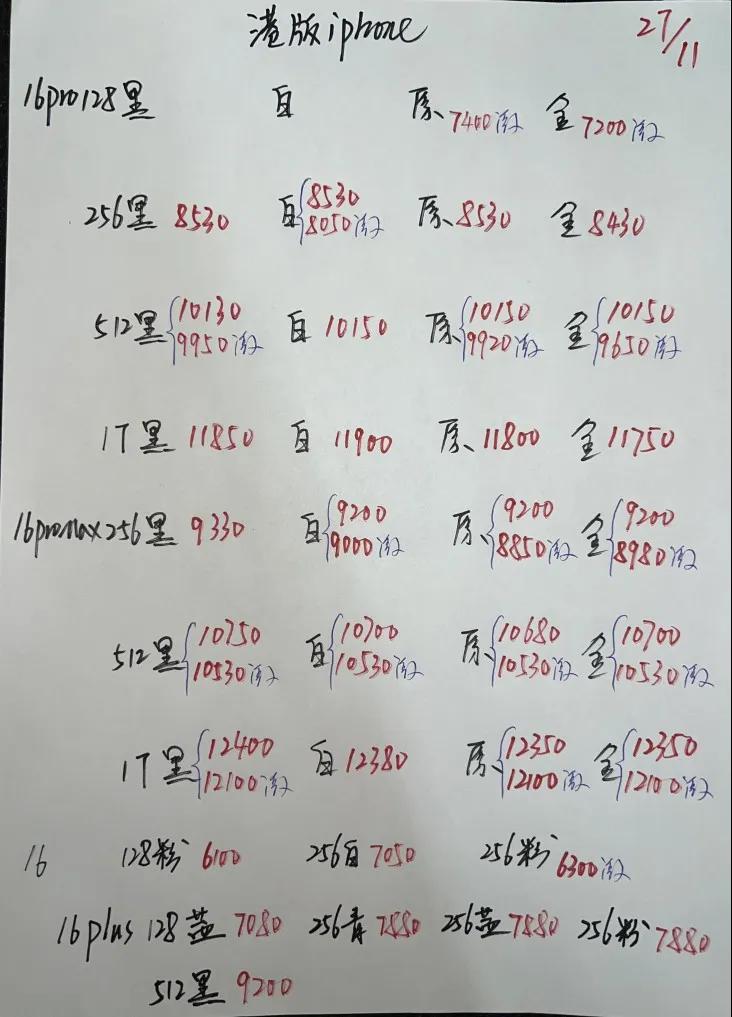 港版iphone 27/11
16pro128黑 白 原 7400激 金 7200激
256黑 8530 白 8530 8050激 原 8530 金 8430
512黑 10130 9950激 白 10150 原 10150 9920激 金 10150 9650激
1T黑 11850 白 11900 原 11800 金 11750
16promax256黑 9330 白 9200 9000激 原 9200 8850激 金 9200 8980激
512黑 10750 10530激 白 10700 10530激 原 10680 10530激 金 10700 10530激
1T黑 12400 12100激 白 12380 原 12350 12100激 金 12350 12100激
16 128粉 6100 256白 7050 256粉 6300激
16plus 128蓝 7080 256青 7880 256蓝 7880 256粉 7880
512黑 9200